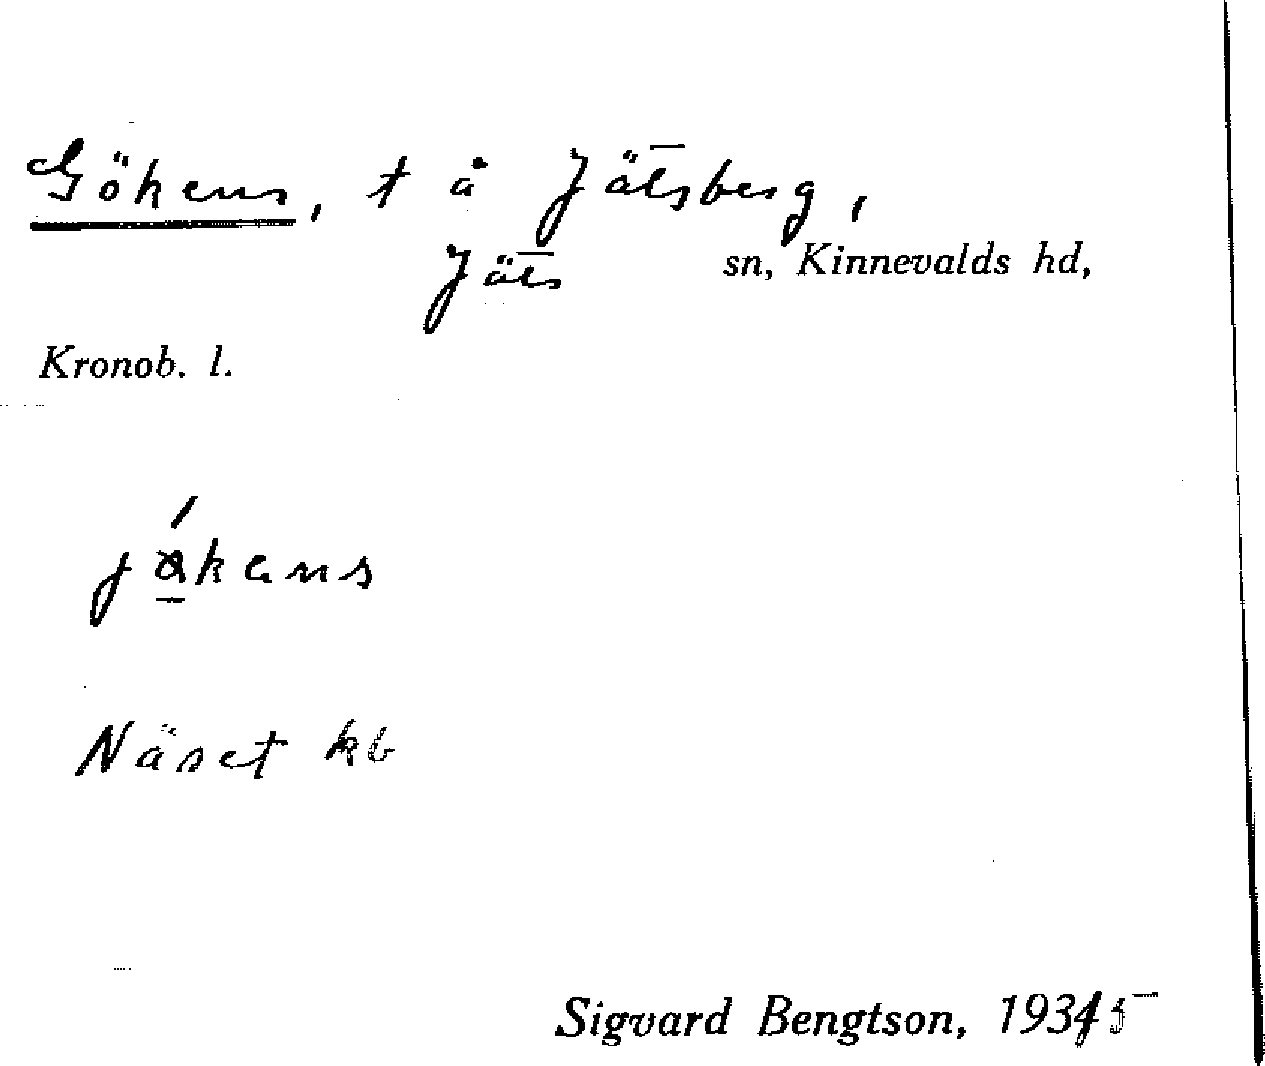 Gökens, t å Jätsberg,
Jäts sn, Kinnevalds hd,
Kronob. l.
Näset kb
Sigvard Bengtson, 1935